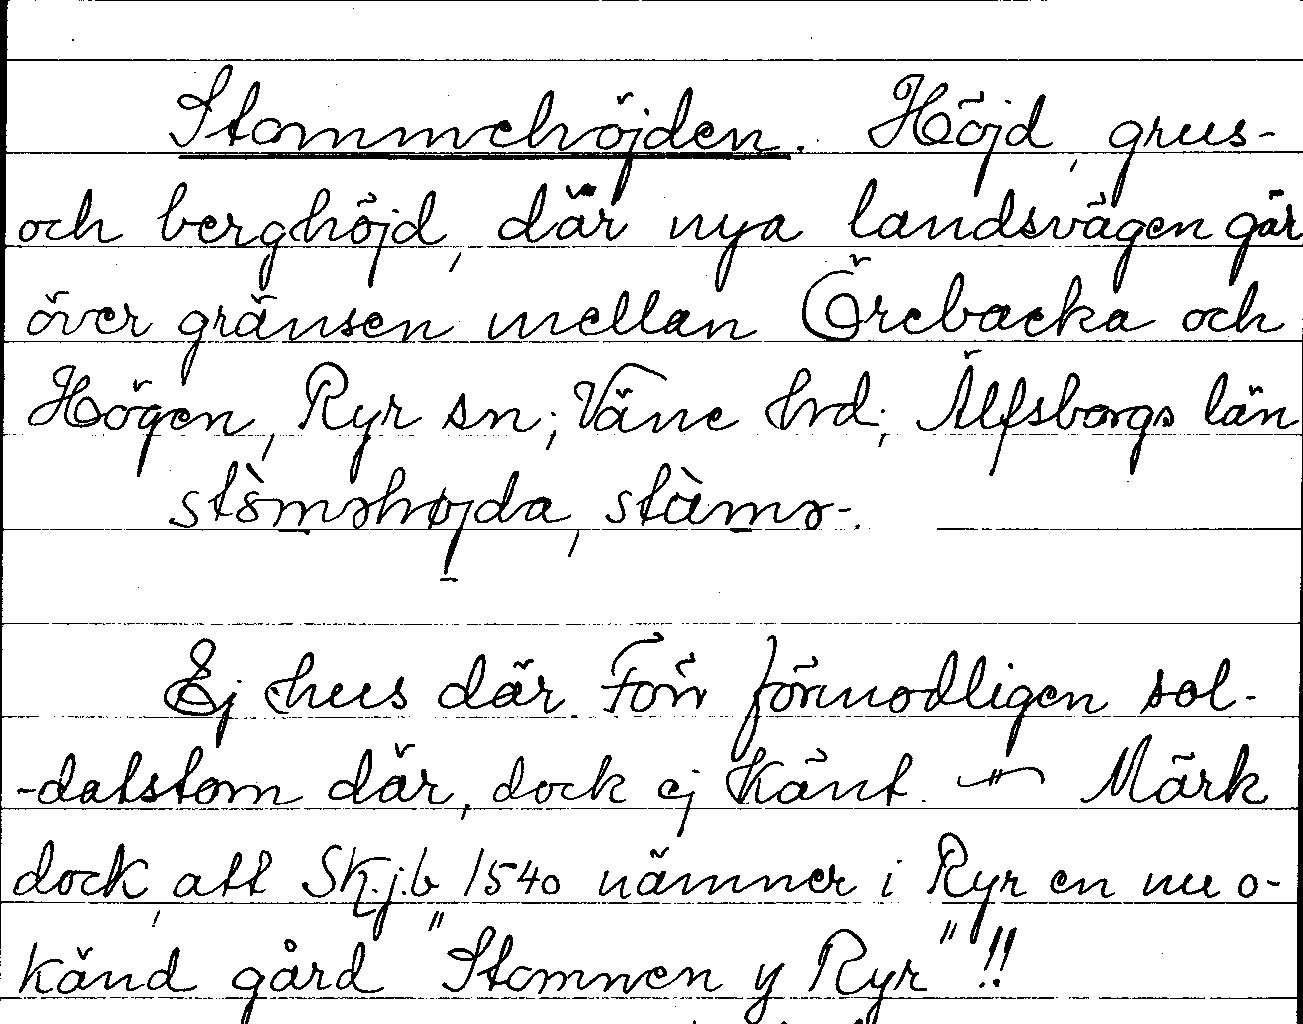 Stommehöjden. Höjd, grus-
och berghöjd, där nya landsvägen går
över gränsen mellan Örebacka och
Högen, Ryr sn; Väne hrd; Älfsborgs län
stòməhøjda, stàmə-.
Ej hus där. Förr förmodligen sol-
-datstom där, dock ej känt. Märk
dock, att Sk.j.b 1540 nämner i Ryr en nu o-
känd gård "Stomnen y Ryr"!!